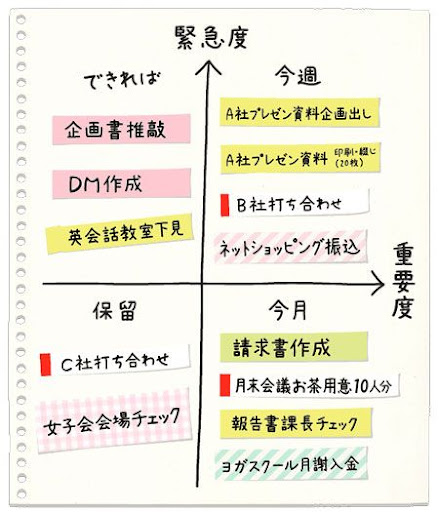 緊急度
できれば
企画書推敲
DM作成
英会話教室下見
今週
A社プレゼン資料企画出し
A社プレゼン資料 印刷・綴じ(20枚)
B社打ち合わせ
ネットショッピング振込
重要度
保留
C社打ち合わせ
女子会会場チェック
今月
請求書作成
月末会議お茶用意10人分
報告書課長チェック
ヨガスクール月謝入金